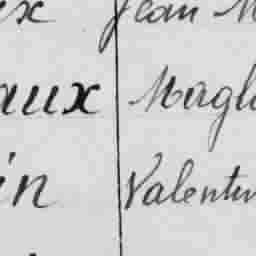 ux Jean M
aux Magl
in Valentin